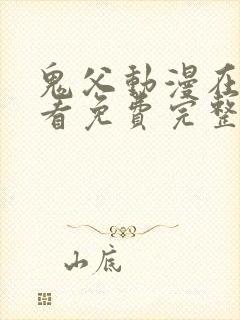 鬼父動漫在
看免費完整
山底